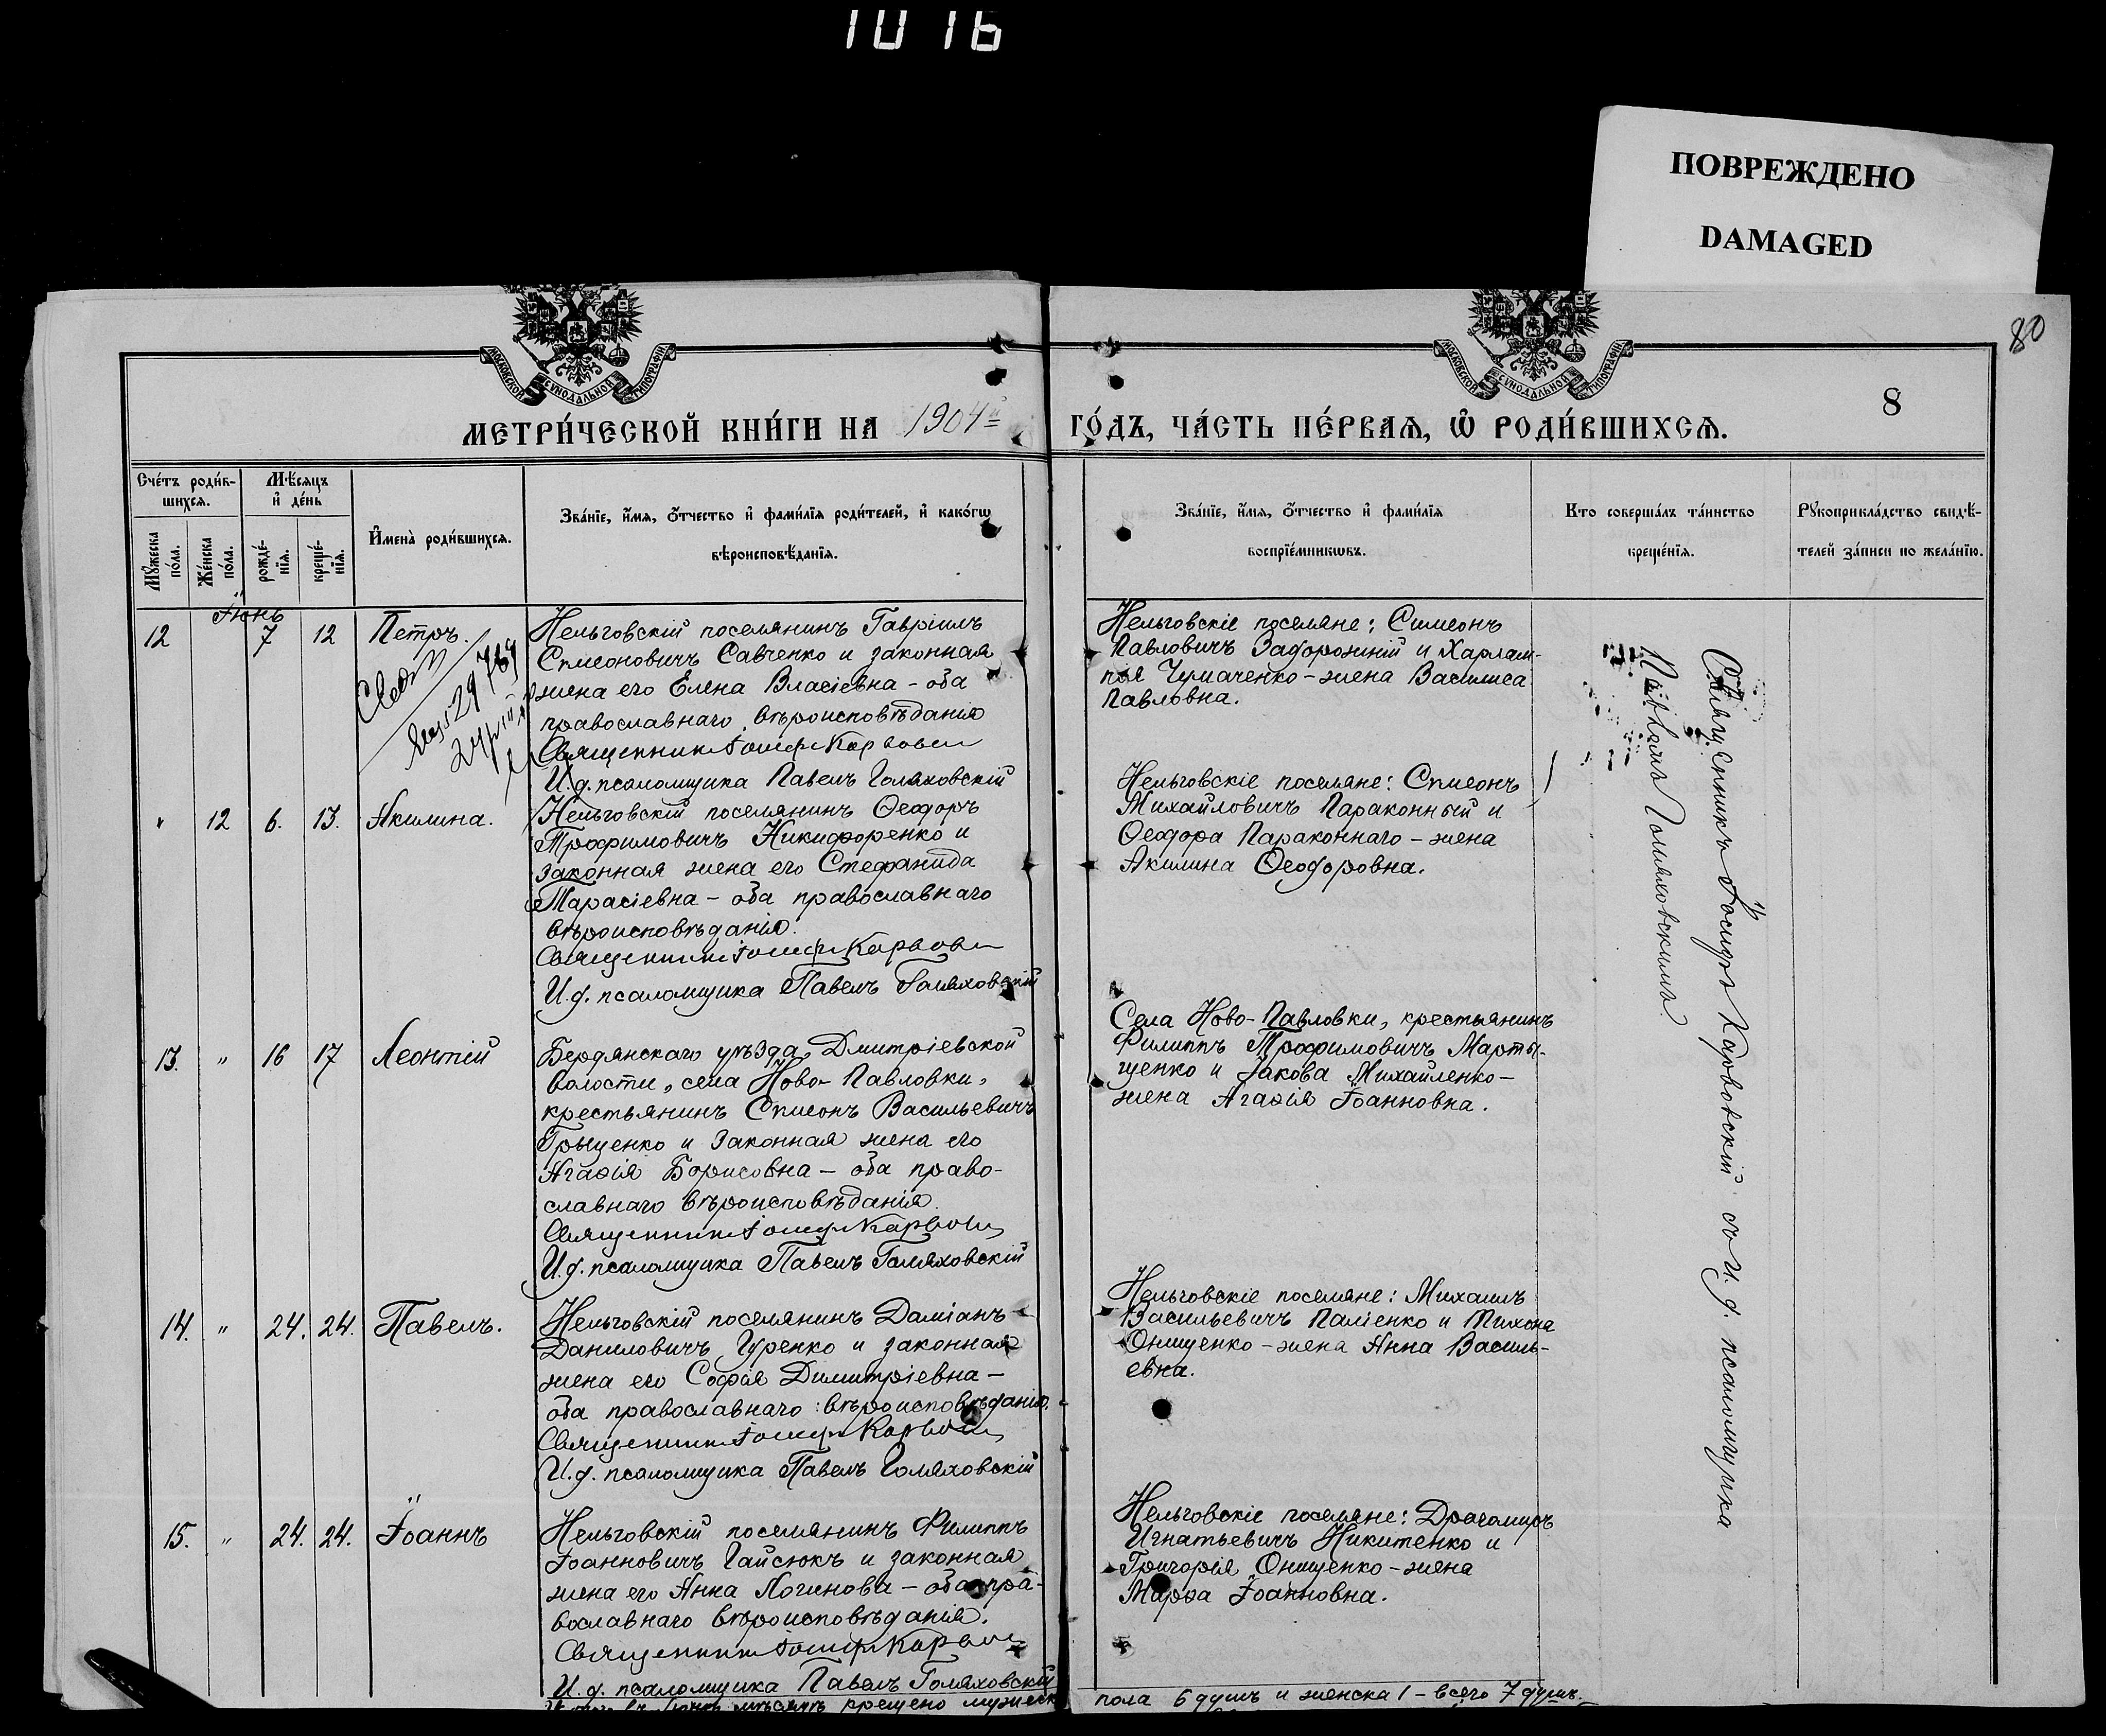 10 16
ПОВРЕЖДЕНО
DAMAGED
80
МОСКОВСКОЙ СѴНОДАЛЬНОЙ ТИПОГРАФІИ
МОСКОВСКОЙ СѴНОДАЛЬНОЙ ТИПОГРАФІИ
8
МЕТРИ́ЧЕСКОЙ КНИ́ГИ НА 1904й
ГО́ДЪ, ЧА́СТЬ ПЕ́РВАѦ, Ѡ҆ РОДИ́ВШИХСѦ.
Сче́тъ роди́в-
шихсѧ.
Мꙋ́жеска по́ла.
Же́нска по́ла.
Мѣ́сѧцъ
и҆ де́нь
рожде́-
нїѧ.
креще́-
нїѧ.
И҆мена̀ роди́вшихсѧ.
Зва́нїе, и҆́мѧ, ѻ҆́тчество и҆ фами́лїѧ роди́телей, и҆ како́гѡ
вѣроисповѣ́данїѧ.
Зва́нїе, и҆́мѧ, ѻ҆́тчество и҆ фами́лїѧ
воспрїе́мникѡвъ.
Кто соверша́лъ та́инство
креще́нїѧ.
Рꙋкоприкла́дство свидѣ́-
телей за́писи по жела́нїю.
Іюнь
12 7 12 Петръ.
Нельговскій поселянинъ Гавріилъ
Симеоновичъ Савченко и законная
жена его Елена Власіевна - оба
православнаго вѣроисповѣданія
Священникъ Іосифъ Карвовскій
И. д. псаломщика Павелъ Голяховскій
Нельговскіе поселяне: Симеонъ
Павловичъ Задорожній и Харлам-
пія Чумаченко - жена Василиса
Павловна.
" 12 6. 13. Акилина.
Нельговскій поселянинъ Ѳеодоръ
Трофимовичъ Никифоренко и
законная жена его Стефанида
Тарасіевна - оба православнаго
вѣроисповѣданія.
Священникъ Іосифъ Карвовскій
И. д. псаломщика Павелъ Голяховскій
Нельговскіе поселяне: Симеонъ
Михайловичъ Параконный и
Ѳеодора Параконнаго - жена
Акилина Ѳеодоровна.
13. " 16 17 Леонтій
Бердянскаго уѣзда, Дмитріевской
волости, села Ново-Павловки,
крестьянинъ Симеонъ Васильевичъ
Грыценко и законная жена его
Агафія Борисовна - оба право-
славнаго вѣроисповѣданія.
Священникъ Іосифъ Карвовскій
И. д. псаломщика Павелъ Голяховскій
Села Ново-Павловки, крестьянинъ
Филиппъ Трофимовичъ Марты-
щенко и Іакова Михайленко-
жена Агафія Іоанновна.
14. " 24. 24. Павелъ.
Нельговскій поселянинъ Даміанъ
Даниловичъ Гуренко и законная
жена его Софія Димитріевна -
оба православнаго вѣроисповѣданія.
Священникъ Іосифъ Карвовскій
И. д. псаломщика Павелъ Голяховскій
Нельговскіе поселяне: Михаилъ
Васильевичъ Паліенко и Тихона
Онищенко - жена Анна Василь-
евна.
15. " 24. 24. Іоаннъ
Нельговскій поселянинъ Филиппъ
Іоанновичъ Гайсюкъ и законная
жена его Анна Логинова - оба пра-
вославнаго вѣроисповѣданія.
Священникъ Іосифъ Карвовскій
И. д. псаломщика Павелъ Голяховскій
Нельговскіе поселяне: Драгомиръ
Игнатьевичъ Никитенко и
Григорія Онищенко - жена
Марфа Іоанновна.
Священникъ Іосифъ Карвовскій съ и. д. псаломщика
Павломъ Голяховскимъ.
крещено мужеска пола 6 душъ и женска 1 - всего 7 душъ.